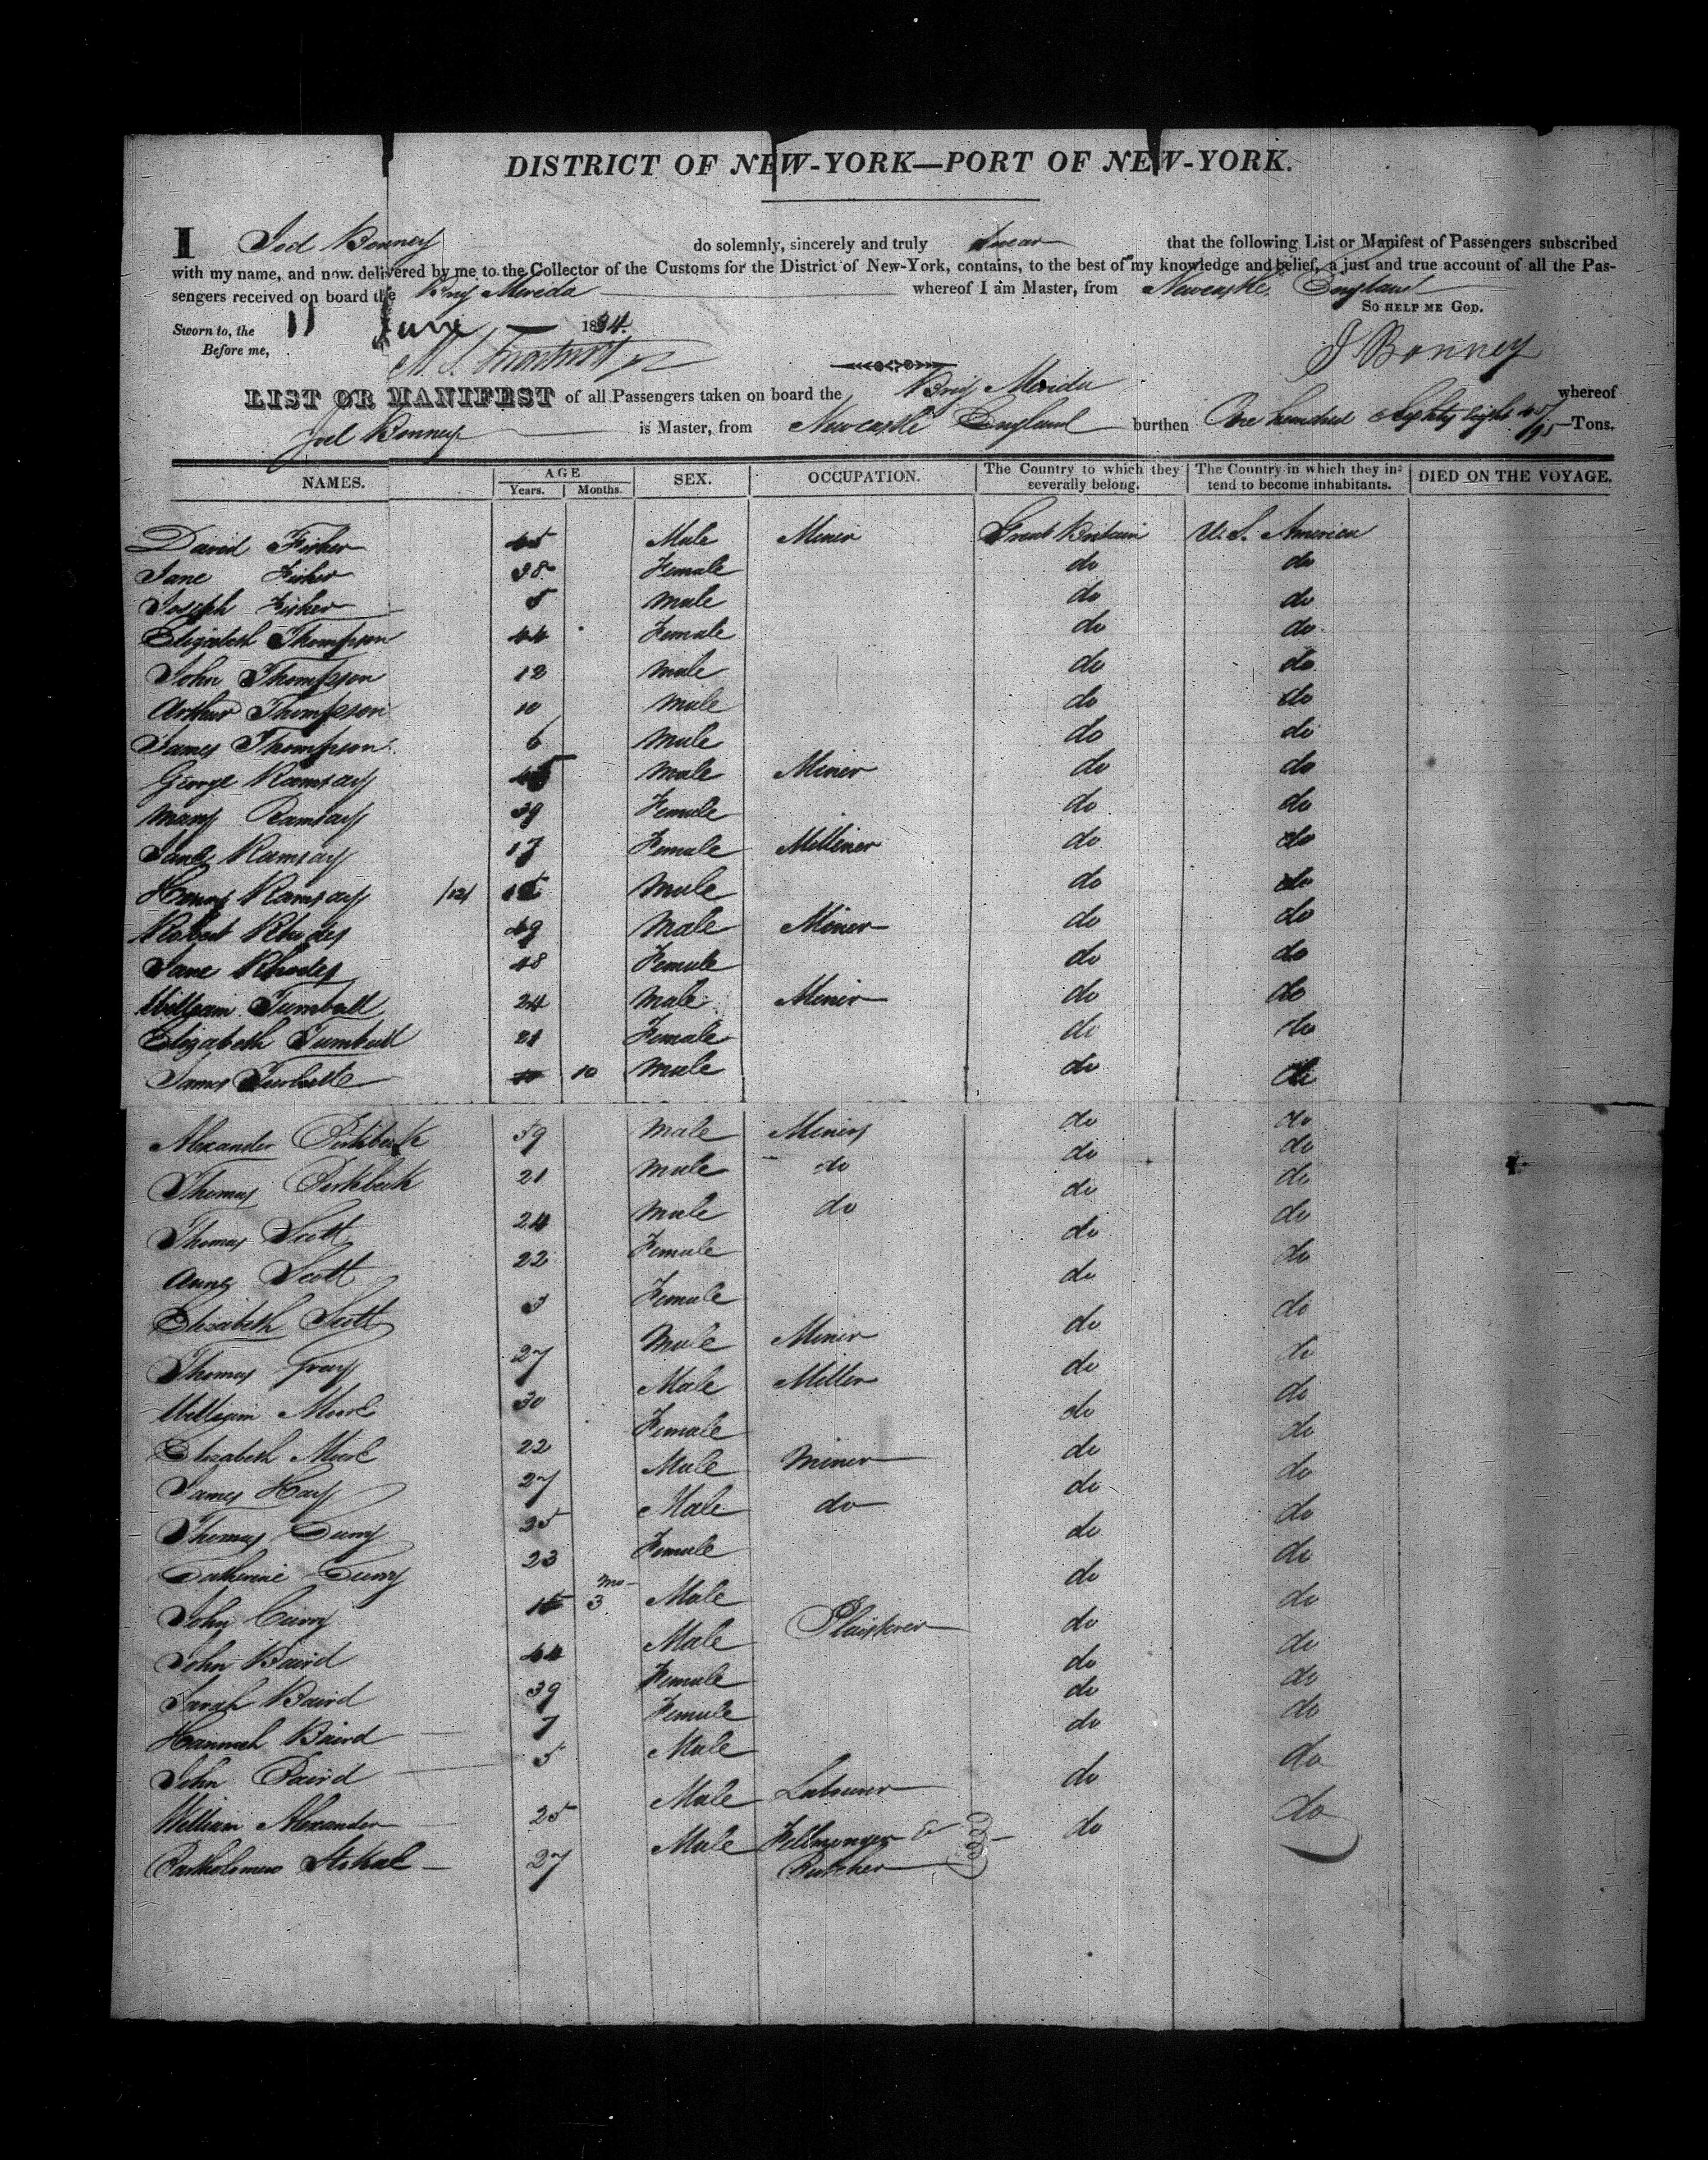 DISTRICT OF NEW-YORK—PORT OF NEW-YORK.
I Joel Bonney do solemnly, sincerely and truly swear that the following List or Manifest of Passengers subscribed
with my name, and now delivered by me to the Collector of the Customs for the District of New-York, contains, to the best of my knowledge and belief, a just and true account of all the Pas-
sengers received on board the Brig Merida whereof I am Master, from Newcastle, England
So HELP ME GOD.
Sworn to, the 11 June 1834.
Before me,
J Bonney
LIST OR MANIFEST of all Passengers taken on board the Brig Merida whereof
Joel Bonney is Master, from Newcastle England burthen One hundred Eighty eight 45/95 Tons.
NAMES. AGE Years. Months. SEX. OCCUPATION. The Country to which they severally belong. The Country in which they in-tend to become inhabitants. DIED ON THE VOYAGE.
David Fisher 45 Male Miner Great Britain U.S. America
Jane Fisher 38 Female do do
Joseph Fisher 5 Male do do
Elizabeth Thompson 44 Female do do
John Thompson 12 Male do do
Arthur Thompson 10 Male do do
James Thompson 6 Male do do
George Ramsay 45 Male Miner do do
Mary Ramsay 39 Female do do
Jane Ramsay 17 Female Milliner do do
Henry Ramsay /12/ Male do do
Robert Rhodes 49 Male Miner do do
Jane Rhodes 48 Female do do
William Turnbull 24 Male Miner do do
Elizabeth Turnbull 21 Female do do
James 10 Male do do
Alexander 59 Male Miner do do
Thomas 21 Male do do do
Thomas Scott 24 Male do do do
Anne Scott 22 Female do do
Elizabeth Scott 3 Female do do
Thomas Gray 27 Male Miner do do
William Moore 30 Male Miller do do
Elizabeth Moore 22 Female do do
James Hay 27 Male Miner do do
Thomas Curry 25 Male do do do
Catherine Curry 23 Female do do
John Curry mo 3 Male do do
John Baird 44 Male Plaisterer do do
Sarah Baird 39 Female do do
Hannah Baird 7 Female do do
John Baird 5 Male do do
William Alexander 25 Male Labourer do do
Bartholomew Stokal 27 Male Fellmonger & Butcher do do